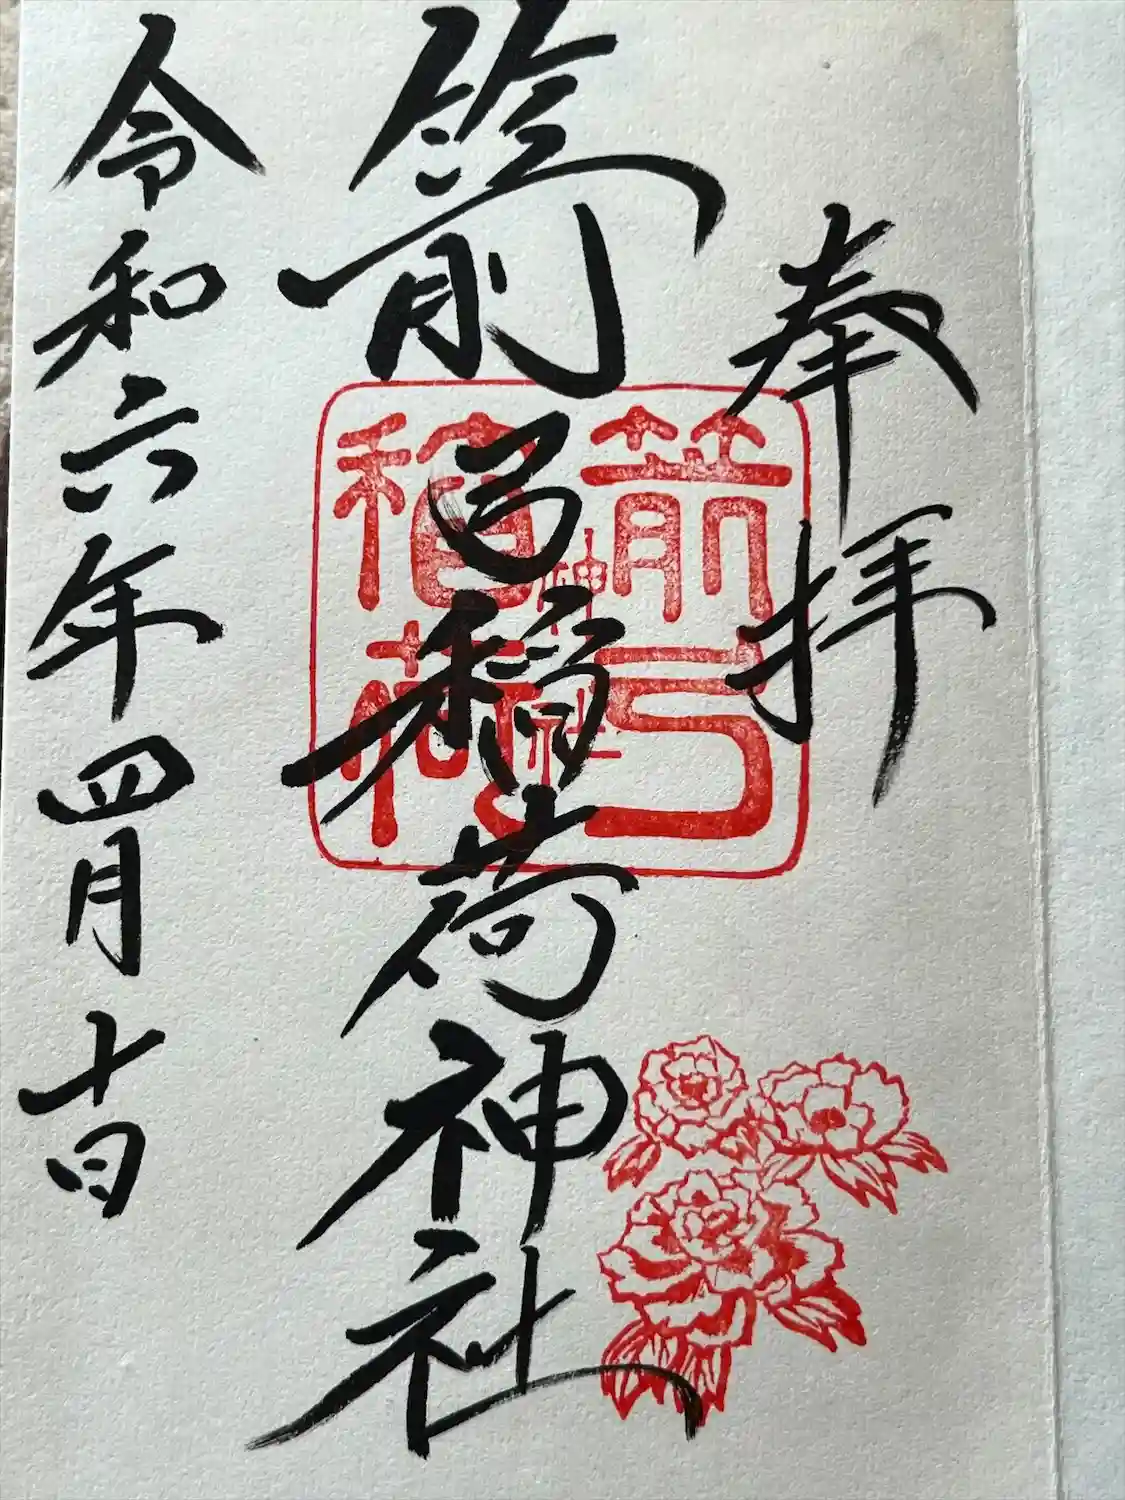 奉拝
箭弓稲荷神社
箭弓
稲荷
神社
令和六年四月十日